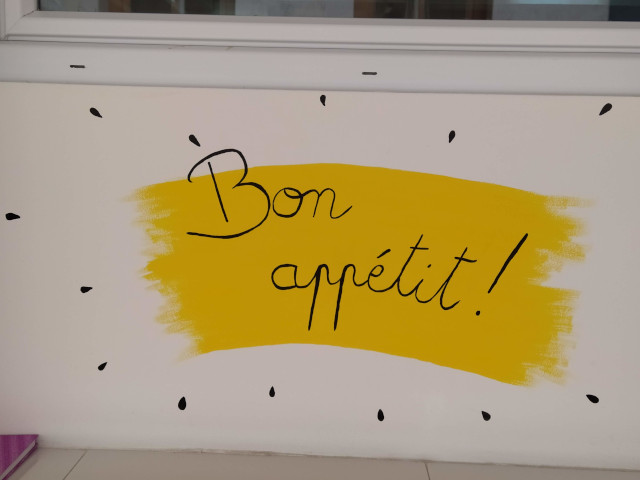 Bon
appétit!